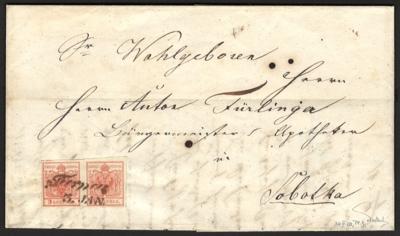 Sr Wohlgeboren
Herrn
Herrn Anton Fürlinga
Bürgermeister / Apotheker
in
Sobotka
5. JAN.